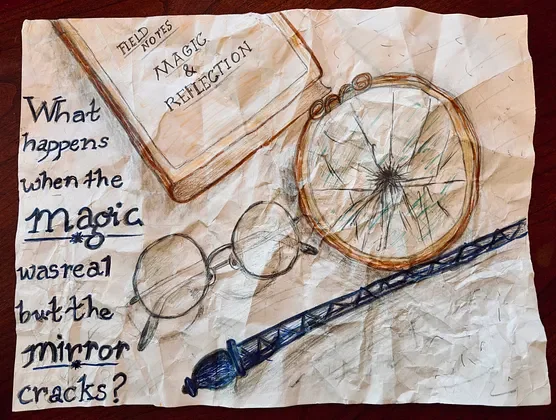 FIELD
NOTES
MAGIC
&
REFLECTION
What
happens
when the
magic
was real
but the
mirror
cracks?